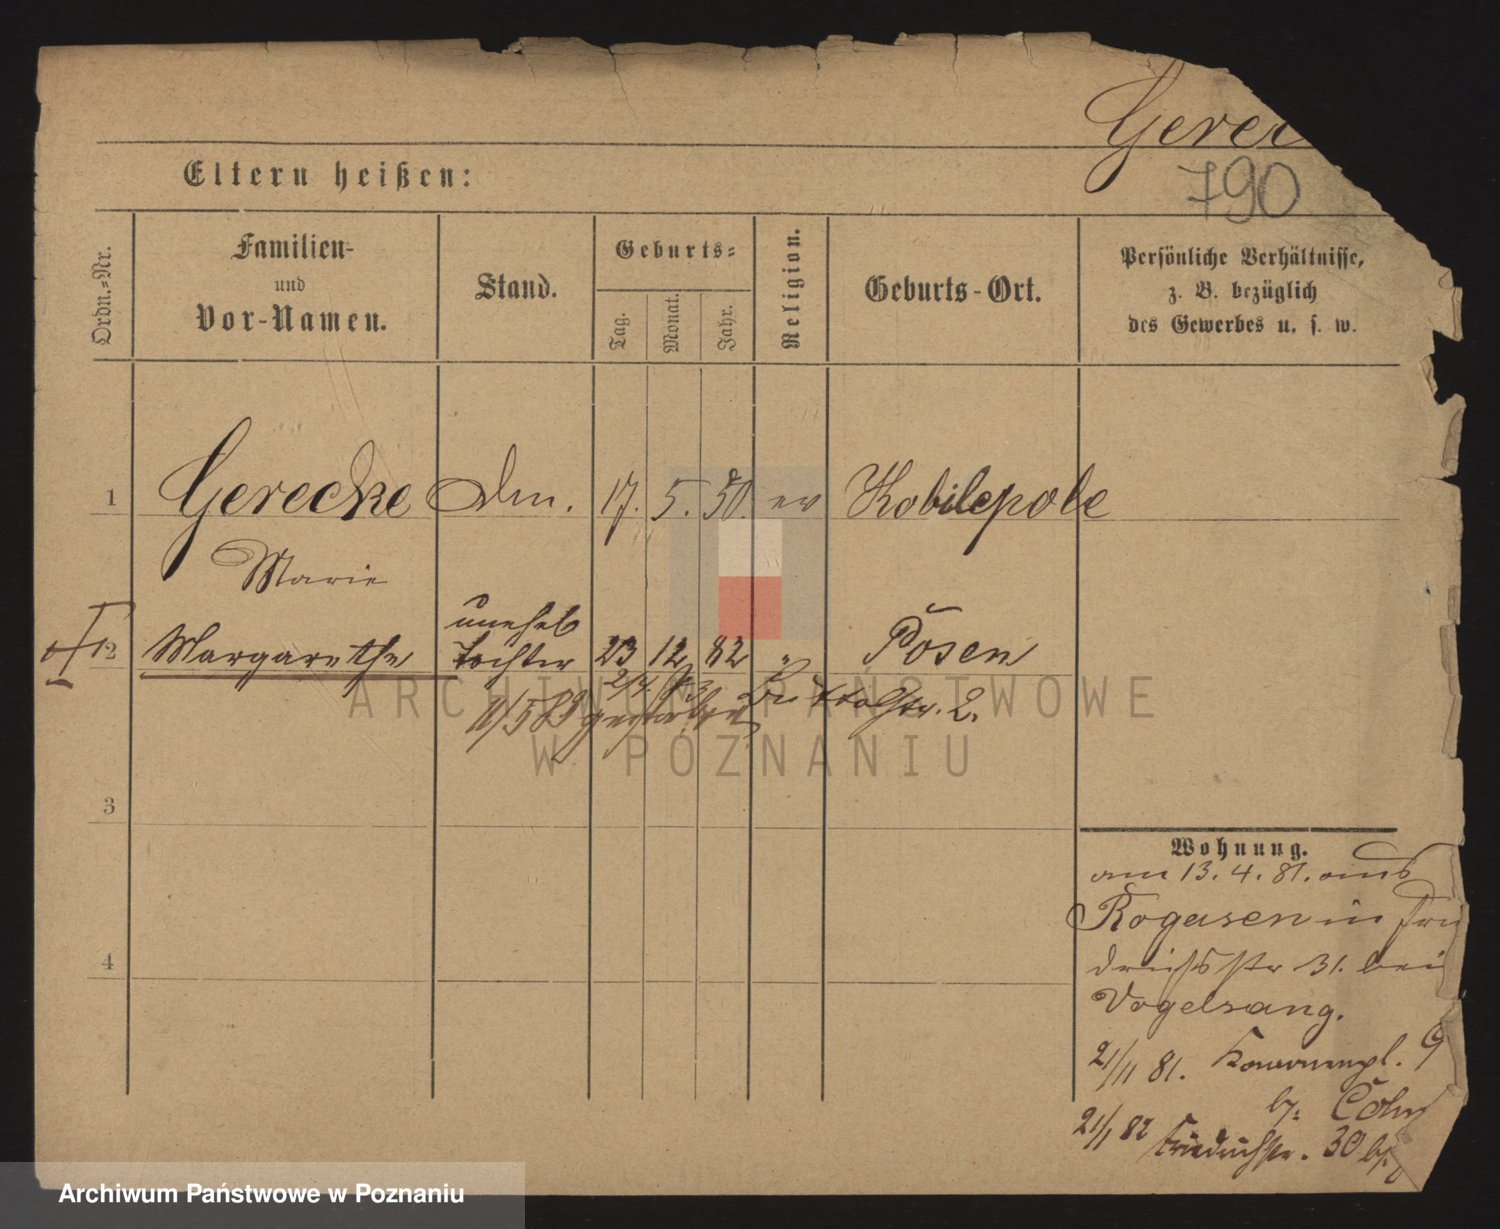 Gerec
790
Eltern heißen:
Ordn.-Nr.
Familien-
und
Vor-Namen.
Stand.
Geburts-
Tag.
Monat.
Jahr.
Religion.
Geburts-Ort.
Persönliche Verhältnisse,
z. B. bezüglich
des Gewerbes u. s. w.
1 Gerecke Dm. 17. 5. 50. ev Kobilepole
Marie
unehel
2 Margarethe Tochter 23 12 82 " Posen
2/4. 83 Buttelstr. 2.
11/5 83 gestorben
ARCHIWUM PAŃSTWOWE
W POZNANIU
3
4
Wohnung.
am 13. 4. 81. aus
Rogasen in Frie
drichsstr 31. bei
Vogelsang.
21/11 81. Kanonenpl. 9
b. Cohn
21/1 82 Friedrichstr. 30 b.
Archiwum Państwowe w Poznaniu